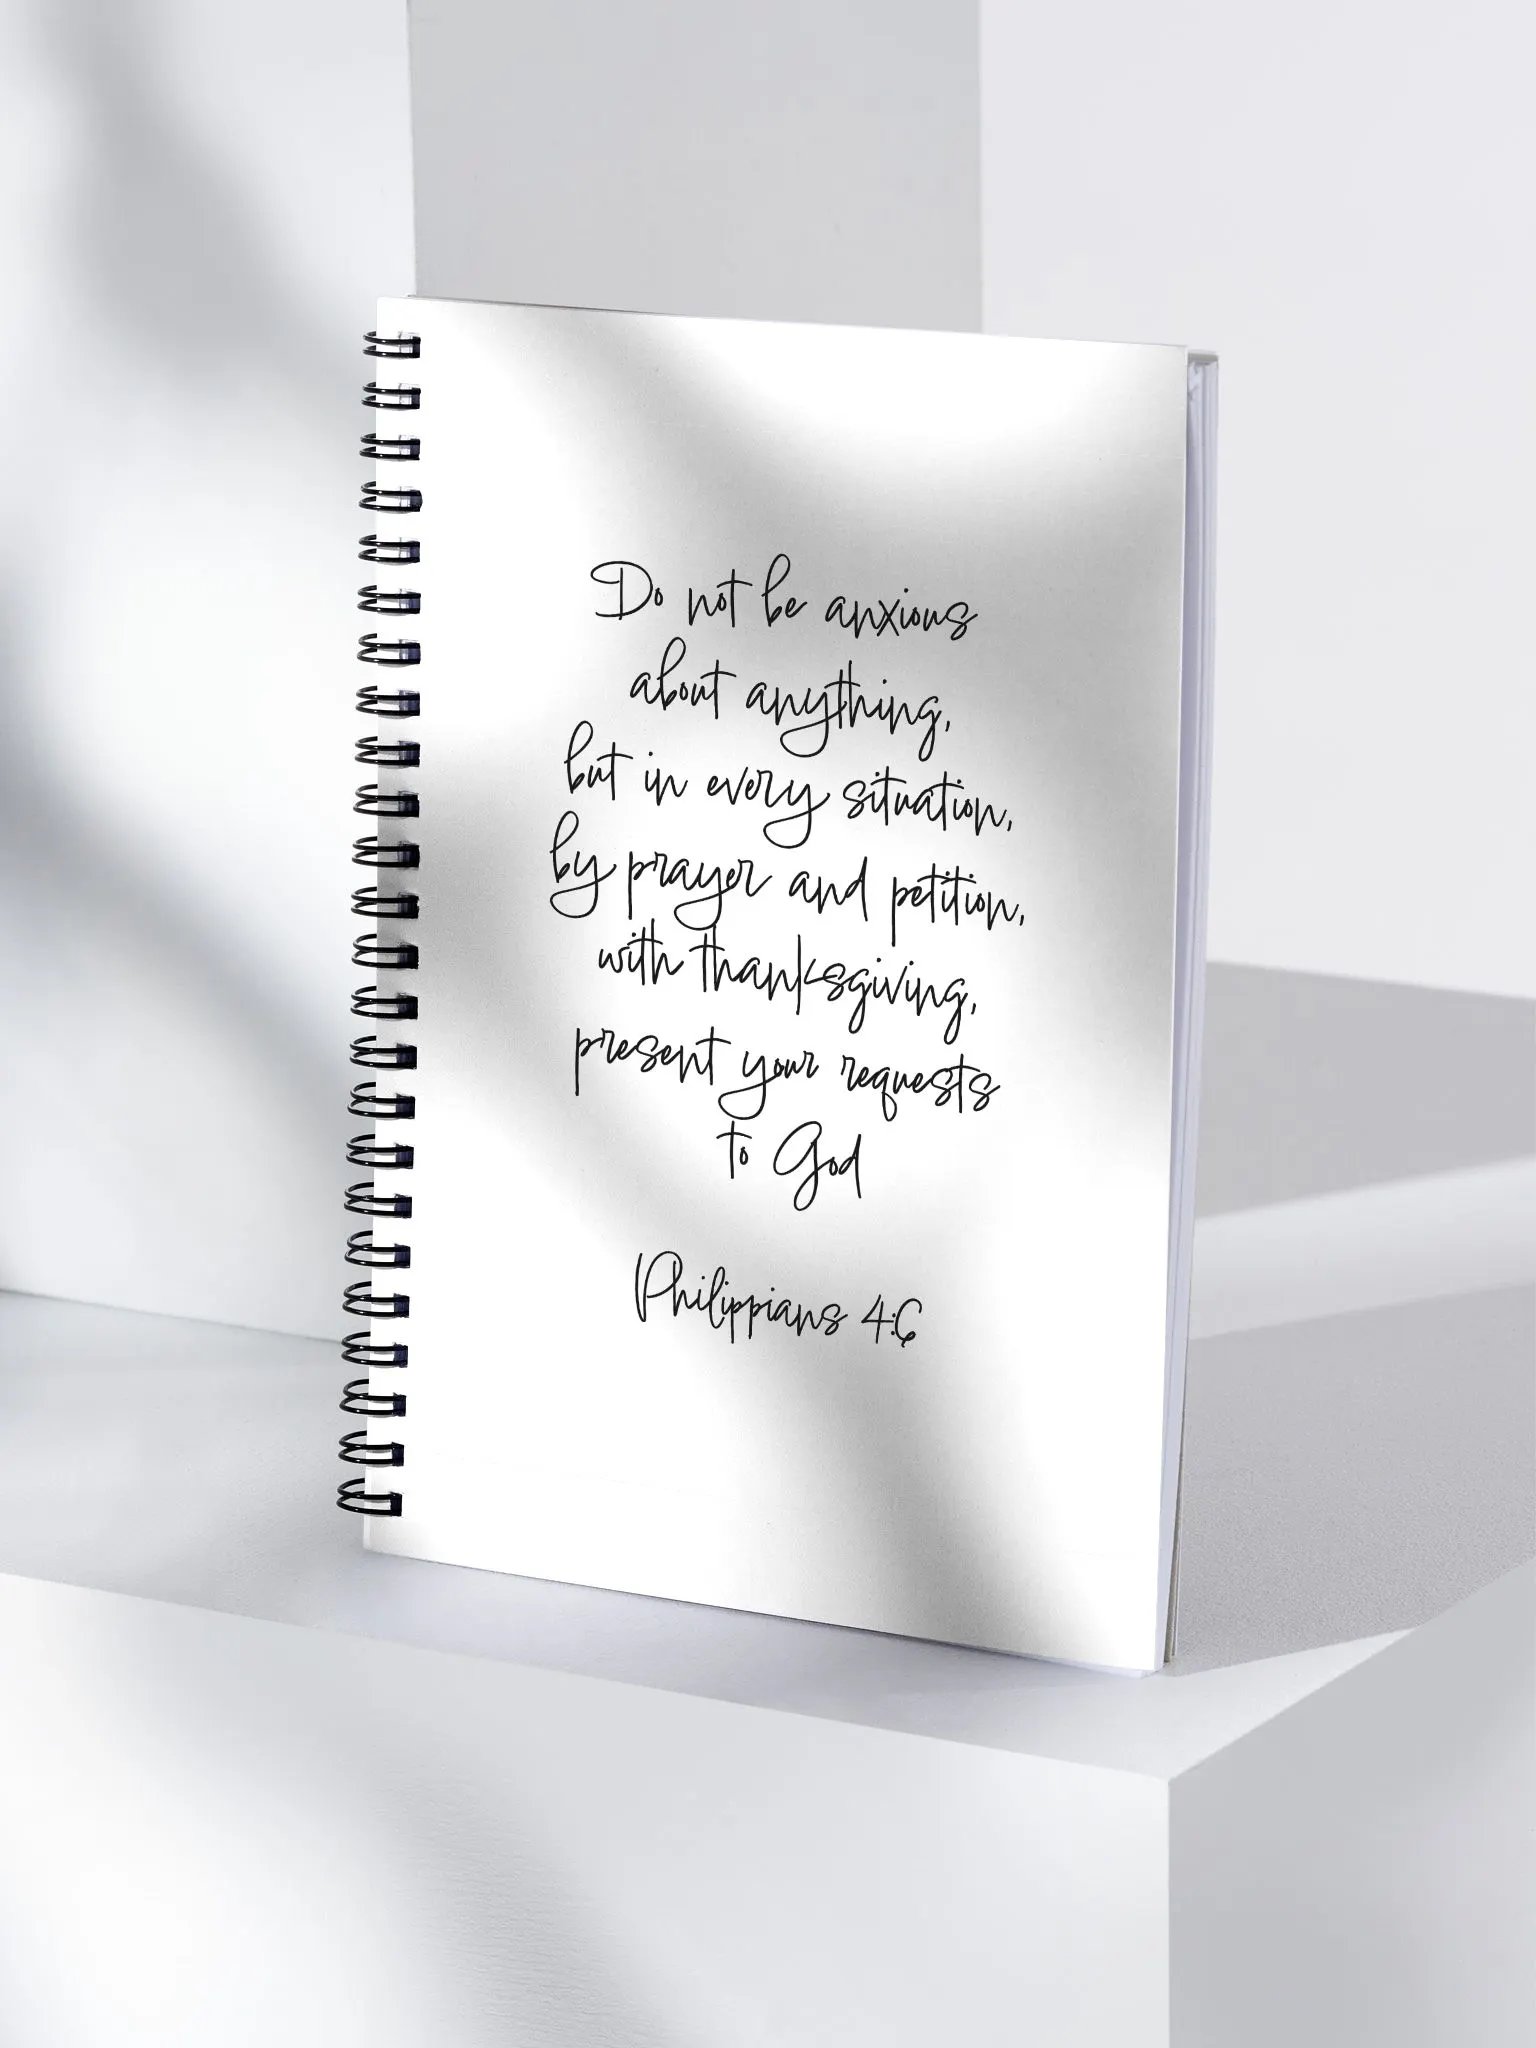 Do not be anxious
about anything,
but in every situation,
by prayer and petition,
with thanksgiving,
present your requests
to God
Philippians 4:6